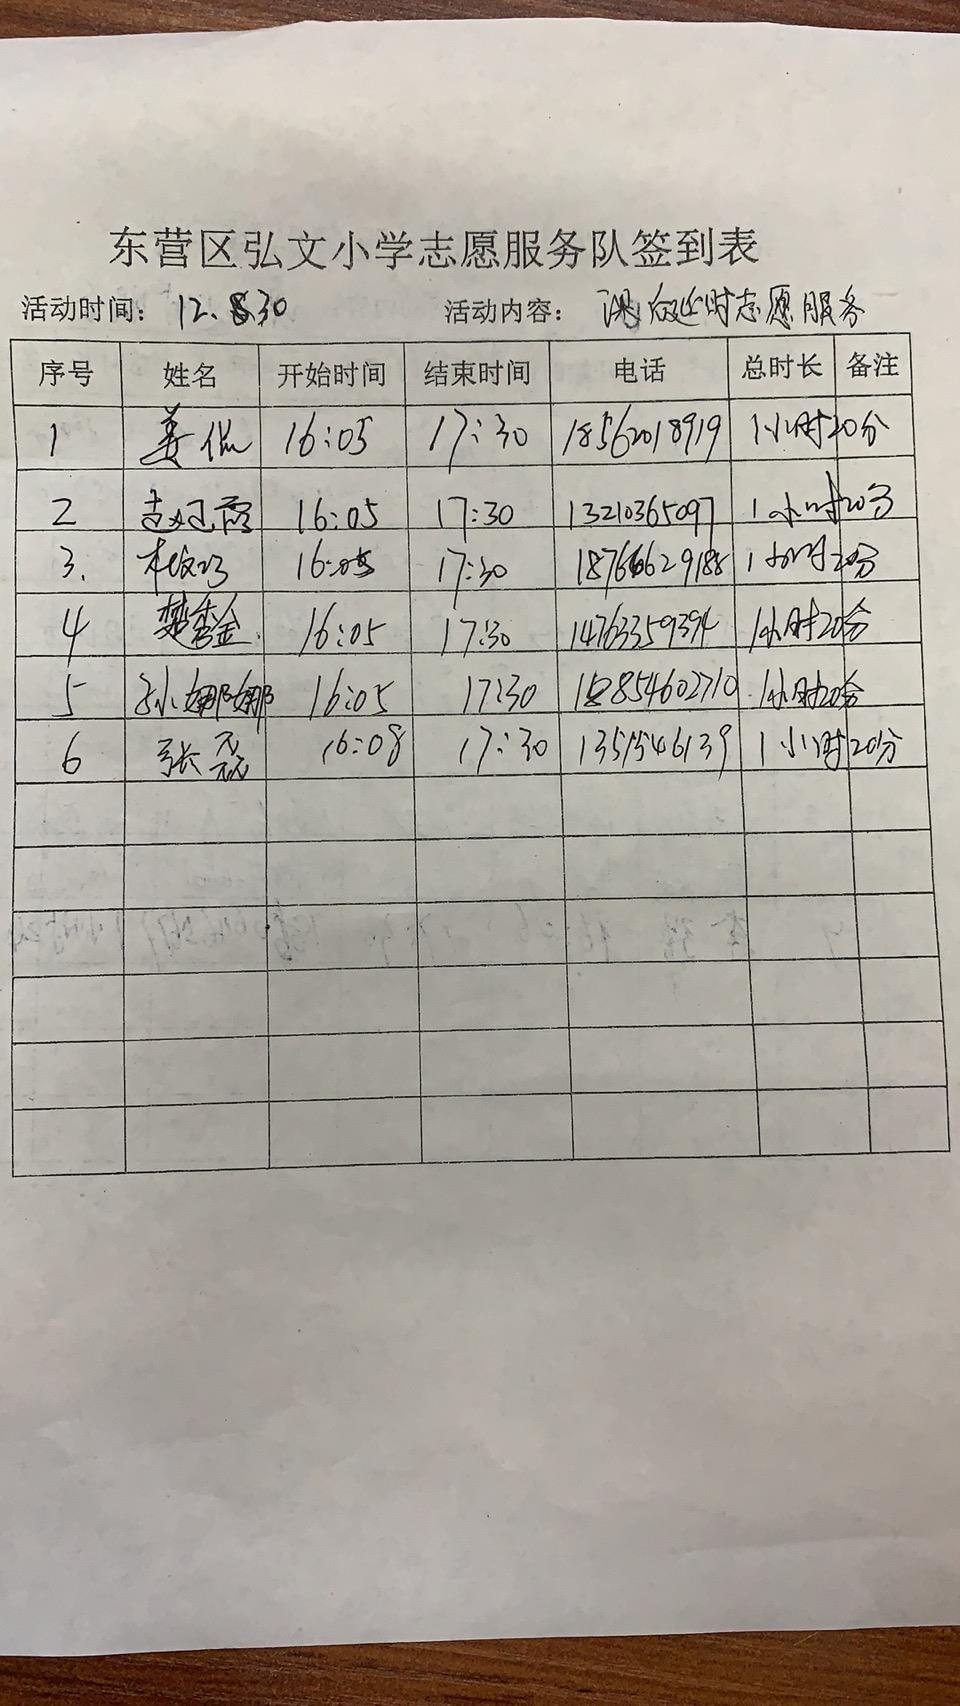 东营区弘文小学志愿服务队签到表
活动时间: 12.30 活动内容: 课后延时志愿服务
序号 姓名 开始时间 结束时间 电话 总时长 备注
1 姜 16:05 17:30 18562018919 1小时20分
2 16:05 17:30 13210365097 1小时20分
3. 16:05 17:30 18766629188 1小时20分
4 楚秀金 16:05 17:30 14763359394 1小时20分
5 孙娜娜 16:05 17:30 1小时20分
6 张磊 16:08 17:30 1351546139 1小时20分